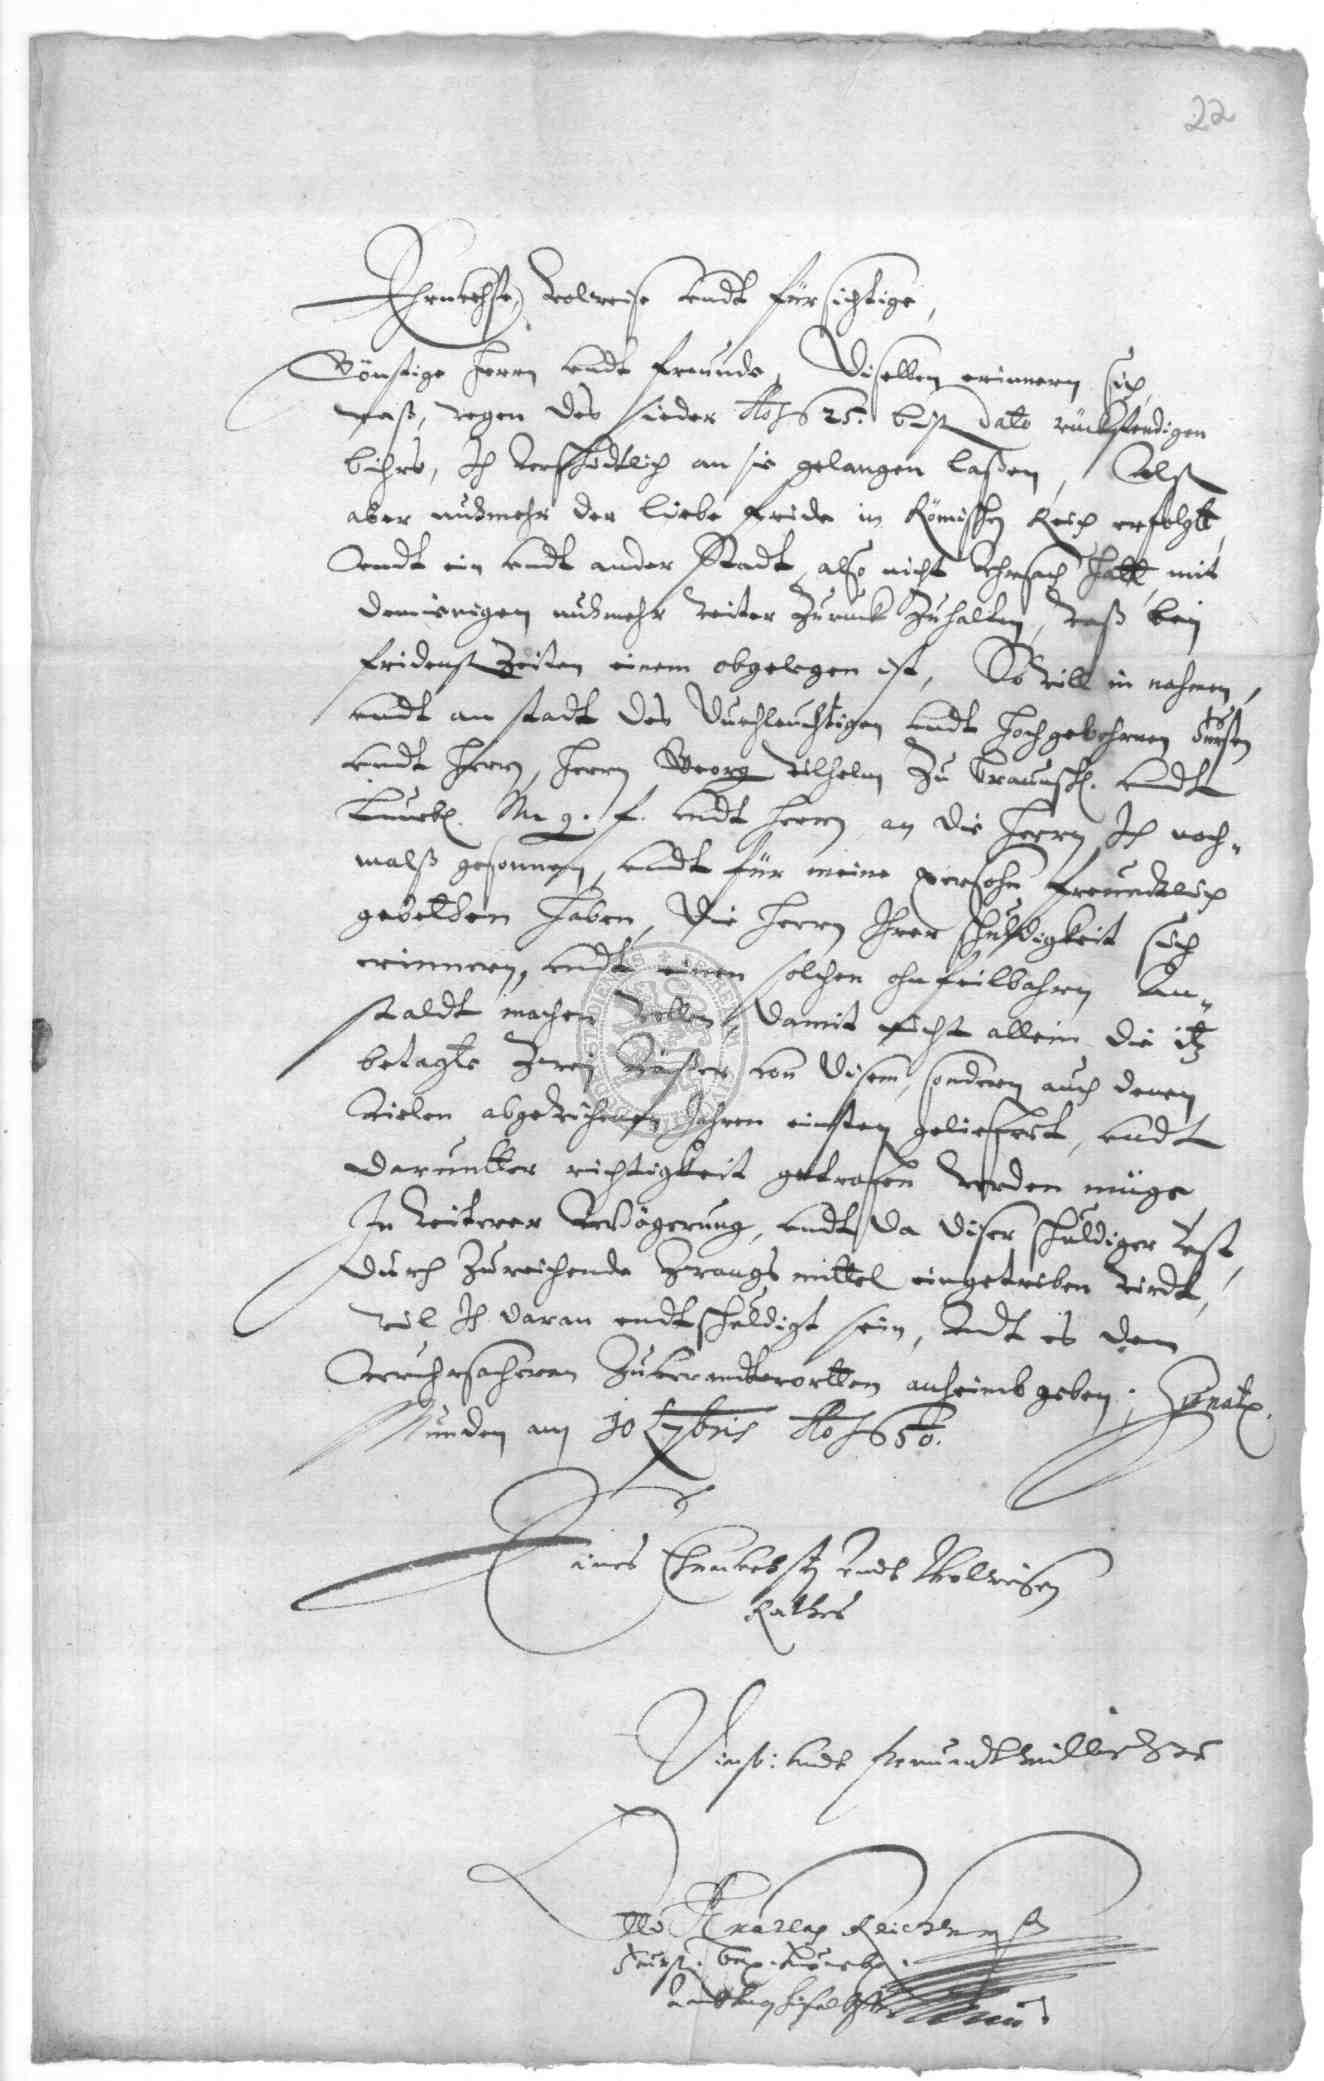 22
Ehrnvehste, Wolweise undt fürsichtige,
Günstige Herrn undt Freunde, Dieselben erinnern sich,
waß, wegen des sieder Ao 1625. biß dato rückstendigen
bihrs, Ich verschidtlich an sie gelangen laßen, Alß
aber nuhmehr der liebe Fride in Römischen Reich erfolgtt,
Undt ein undt ander Stadt, also nicht Uhrsach hatt, mit
demienigen nuhmehr weiter Zuruck Zuhalten, waß bey
fridenß Zeiten einem obgelegen ist, So will in nahmen,
undt an stadt des Durchleuchtigen undt Hochgebohrnen Fürsten
undt Herrn, Herrn Georg Wilhelm Zu Braunschw. undt
Luneb. M. g. F. undt Herrn an die Herrn Ich noch-
malß gesonnen, undt für meine persohn freundtlich
gebetthen haben, Die Herrn Ihrer schuldigkeit sich
erinnern, undt einen solchen ohnfeilbahren An-
staldt machen wollen, damit nicht allein die itz
betagte Zwey Väßer von disem, sondern auch denen
vielen abgewichenen Jahren einsten gelieffert, undt
darunter richtigkeit getroffen werden müge
In weiterer Verwögerung, undt da diser schuldiger rest,
durch Zureichende Zwangs mittel eingetrieben wirdt,
wil Ich daran endtschuldigt sein, undt es dem
Veruhrsacheren Zuverandtwortten anheimb geben;
Munden am 10 7bris Ao 1650.
Eines Ehrnvehsten undt Wolweisen
Rathes
Dienst: undt freundtwilligster
Otto
Fürst: Br.